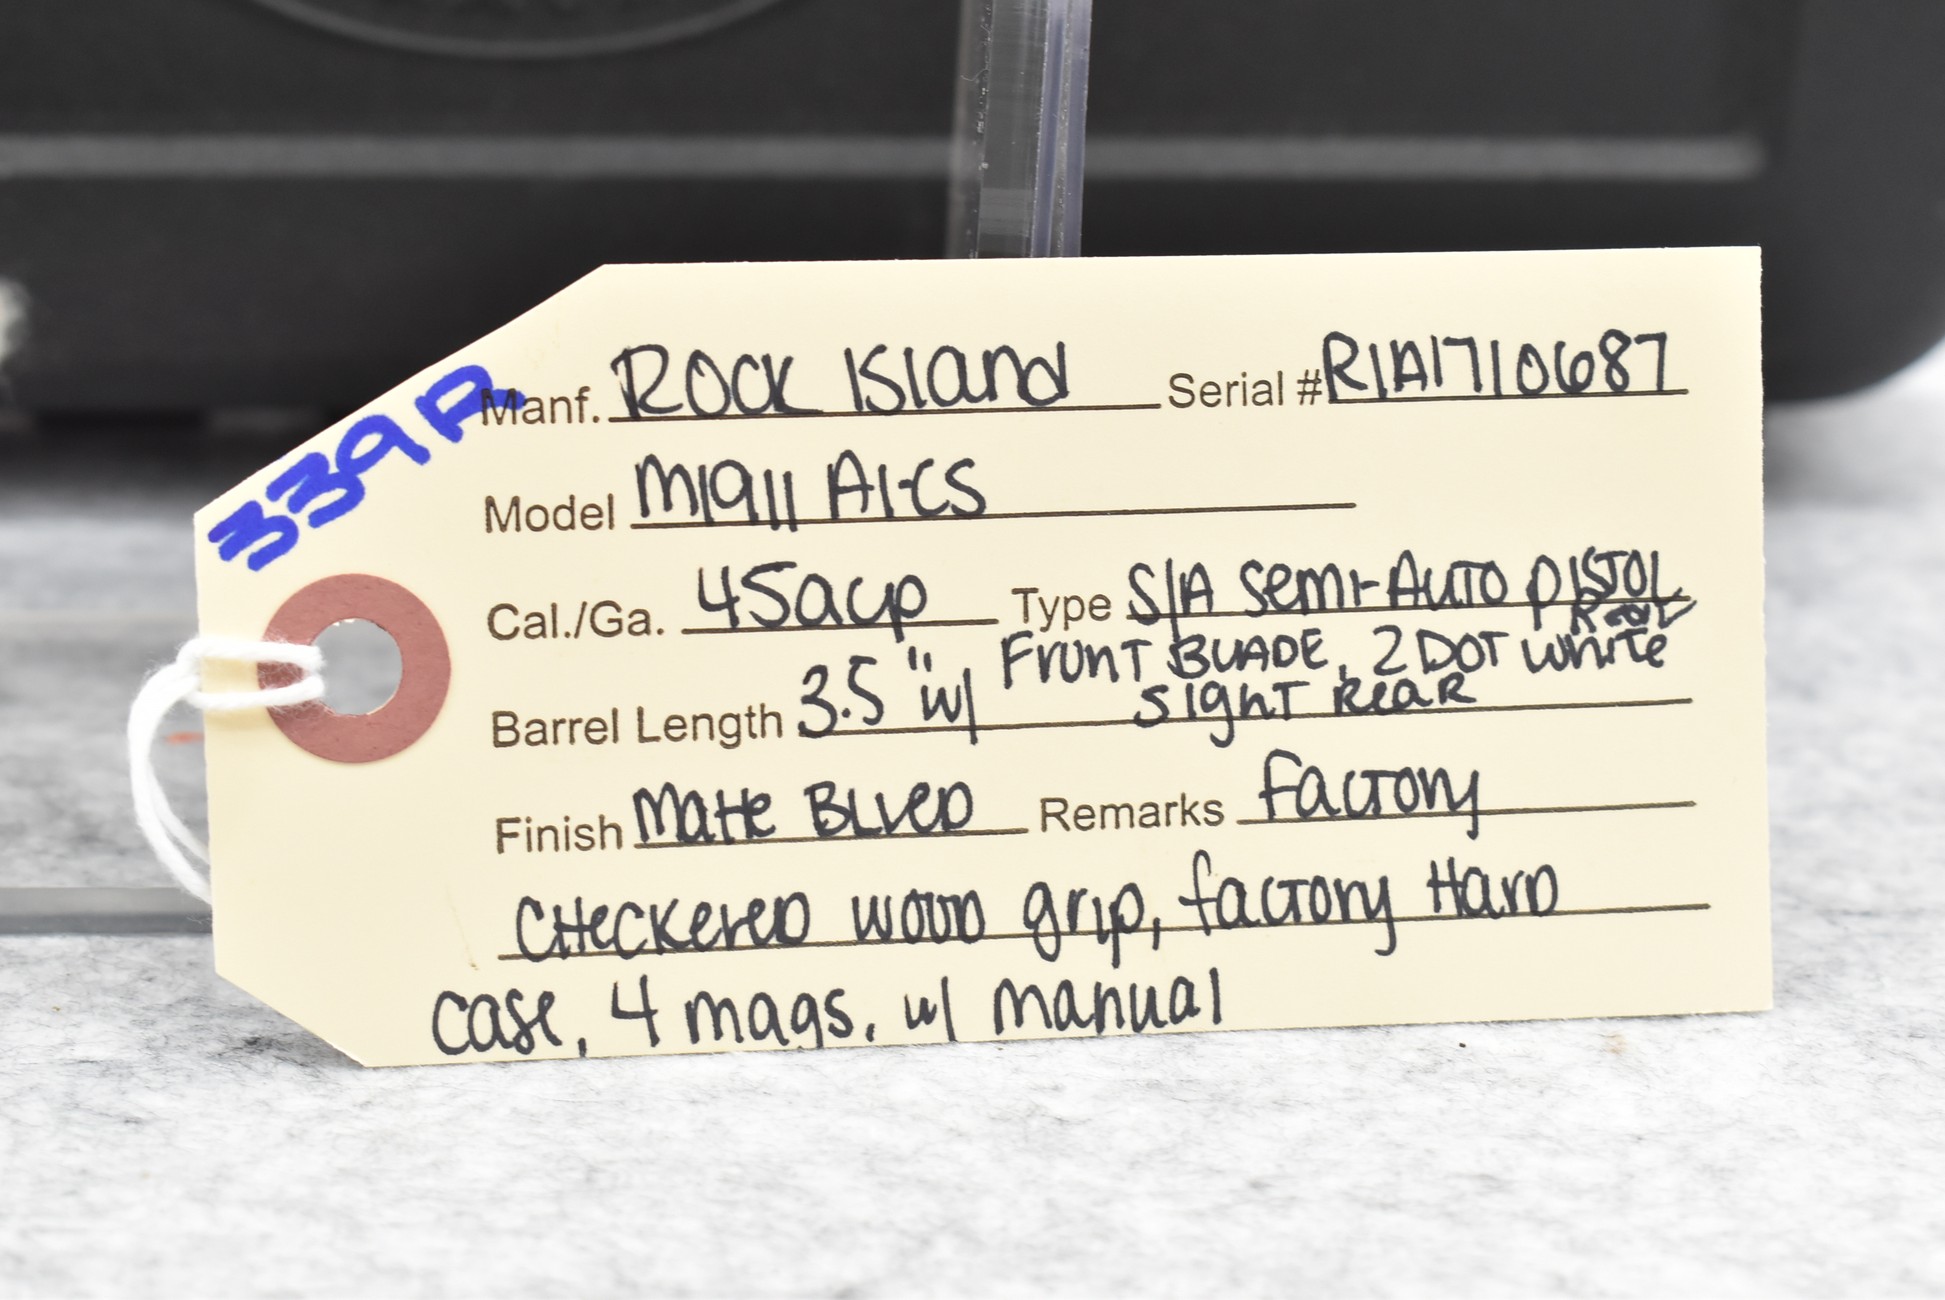 339A
Manf. Rock Island Serial # RIA1710687
Model M1911 A1-CS
Cal./Ga. 45acp Type S/A Semi-Auto Pistol
Rear
Barrel Length 3.5" w/ Front BLADE, 2 DOT white
sight Rear
Finish Matte BLUED Remarks factory
CHeckered wood grip, factory Hard
case, 4 mags, w/ manual